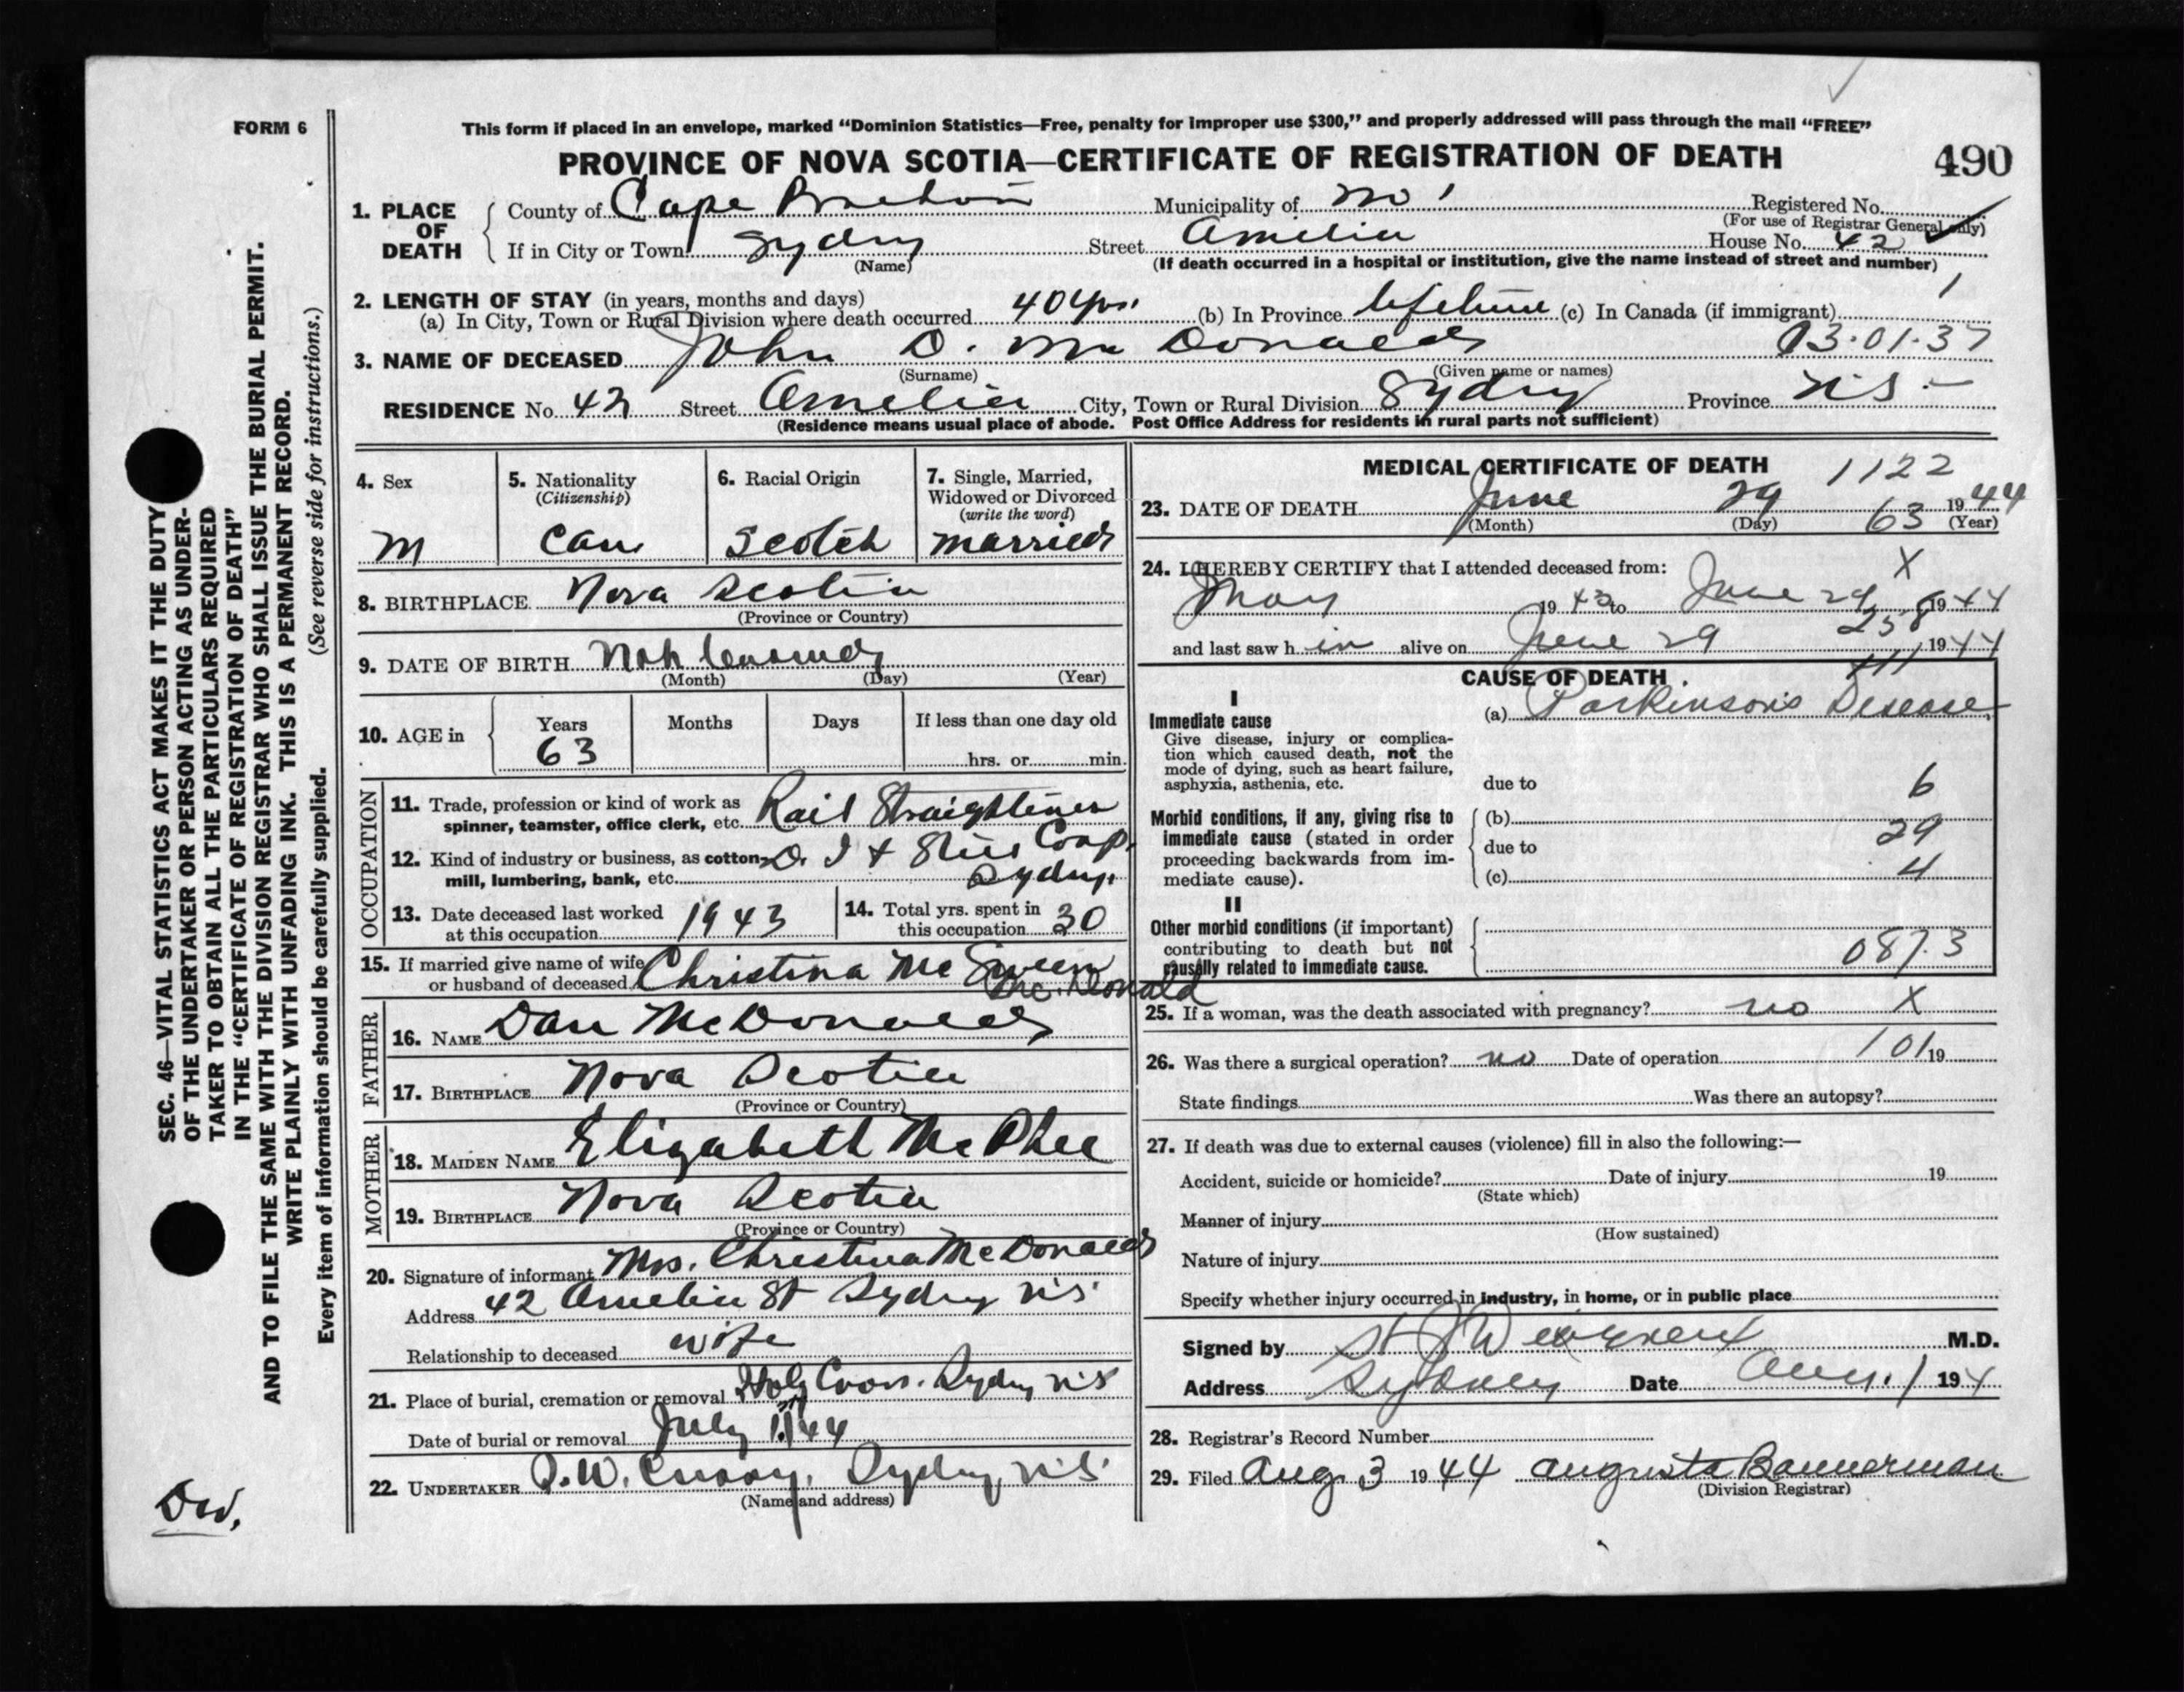 FORM 6
This form if placed in an envelope, marked “Dominion Statistics—Free, penalty for improper use $300,” and properly addressed will pass through the mail “FREE”
PROVINCE OF NOVA SCOTIA—CERTIFICATE OF REGISTRATION OF DEATH
490
1. PLACE OF DEATH
County of Cape Breton Municipality of No 1 Registered No.
(For use of Registrar General only)
If in City or Town Sydney Street Amelia House No. 42
(Name)
(If death occurred in a hospital or institution, give the name instead of street and number)
2. LENGTH OF STAY (in years, months and days)
1
(a) In City, Town or Rural Division where death occurred 40 yrs. (b) In Province lifetime (c) In Canada (if immigrant)
3. NAME OF DECEASED John D. MacDonald 03.01.37
(Surname) (Given name or names)
RESIDENCE No. 42 Street Amelia City, Town or Rural Division Sydney Province N.S.
(Residence means usual place of abode. Post Office Address for residents in rural parts not sufficient)
4. Sex
M
5. Nationality
(Citizenship)
Can
6. Racial Origin
Scotch
7. Single, Married,
Widowed or Divorced
(write the word)
married
8. BIRTHPLACE Nova Scotia
(Province or Country)
9. DATE OF BIRTH
(Month) (Day) (Year)
10. AGE in
Years Months Days If less than one day old
63
hrs. or min.
OCCUPATION
11. Trade, profession or kind of work as
spinner, teamster, office clerk, etc. Rail Straightener
12. Kind of industry or business, as cotton D. I & Steel Corp.
mill, lumbering, bank, etc. Sydney
13. Date deceased last worked
at this occupation 1943
14. Total yrs. spent in
this occupation 30
15. If married give name of wife
or husband of deceased Christina Mc Sween
Mc. Donald
FATHER
16. NAME Dan McDonald
17. BIRTHPLACE Nova Scotia
(Province or Country)
MOTHER
18. MAIDEN NAME Elizabeth McPhee
19. BIRTHPLACE Nova Scotia
(Province or Country)
20. Signature of informant Mrs. Christina McDonald
Address 42 Amelia St Sydney N.S.
Relationship to deceased wife
21. Place of burial, cremation or removal Holy Cross. Sydney N.S
Date of burial or removal July 1st/44
22. UNDERTAKER Sydney, N.S.
(Name and address)
MEDICAL CERTIFICATE OF DEATH 1122
23. DATE OF DEATH June 29 1944
(Month) (Day) 63 (Year)
24. I HEREBY CERTIFY that I attended deceased from: X
May 1942 to June 29 1944
258
and last saw h im alive on June 29 1944
CAUSE OF DEATH
I
Immediate cause
Give disease, injury or complica-
tion which caused death, not the
mode of dying, such as heart failure,
asphyxia, asthenia, etc.
(a) Parkinson's Disease
due to 6
Morbid conditions, if any, giving rise to
immediate cause (stated in order
proceeding backwards from im-
mediate cause).
(b)
due to 29
(c) 4
II
Other morbid conditions (if important)
contributing to death but not
causally related to immediate cause.
087.3
25. If a woman, was the death associated with pregnancy? no X
26. Was there a surgical operation? no Date of operation 101 19
State findings Was there an autopsy?
27. If death was due to external causes (violence) fill in also the following:—
Accident, suicide or homicide? Date of injury 19
(State which)
Manner of injury
(How sustained)
Nature of injury
Specify whether injury occurred in industry, in home, or in public place
Signed by M.D.
Address Sydney Date Aug. 1 194
28. Registrar's Record Number
29. Filed Aug 3 1944 Augusta Bannerman
(Division Registrar)
SEC. 46—VITAL STATISTICS ACT MAKES IT THE DUTY
OF THE UNDERTAKER OR PERSON ACTING AS UNDER-
TAKER TO OBTAIN ALL THE PARTICULARS REQUIRED
IN THE “CERTIFICATE OF REGISTRATION OF DEATH”
AND TO FILE THE SAME WITH THE DIVISION REGISTRAR WHO SHALL ISSUE THE BURIAL PERMIT.
WRITE PLAINLY WITH UNFADING INK. THIS IS A PERMANENT RECORD.
Every item of information should be carefully supplied. (See reverse side for instructions.)
DW.